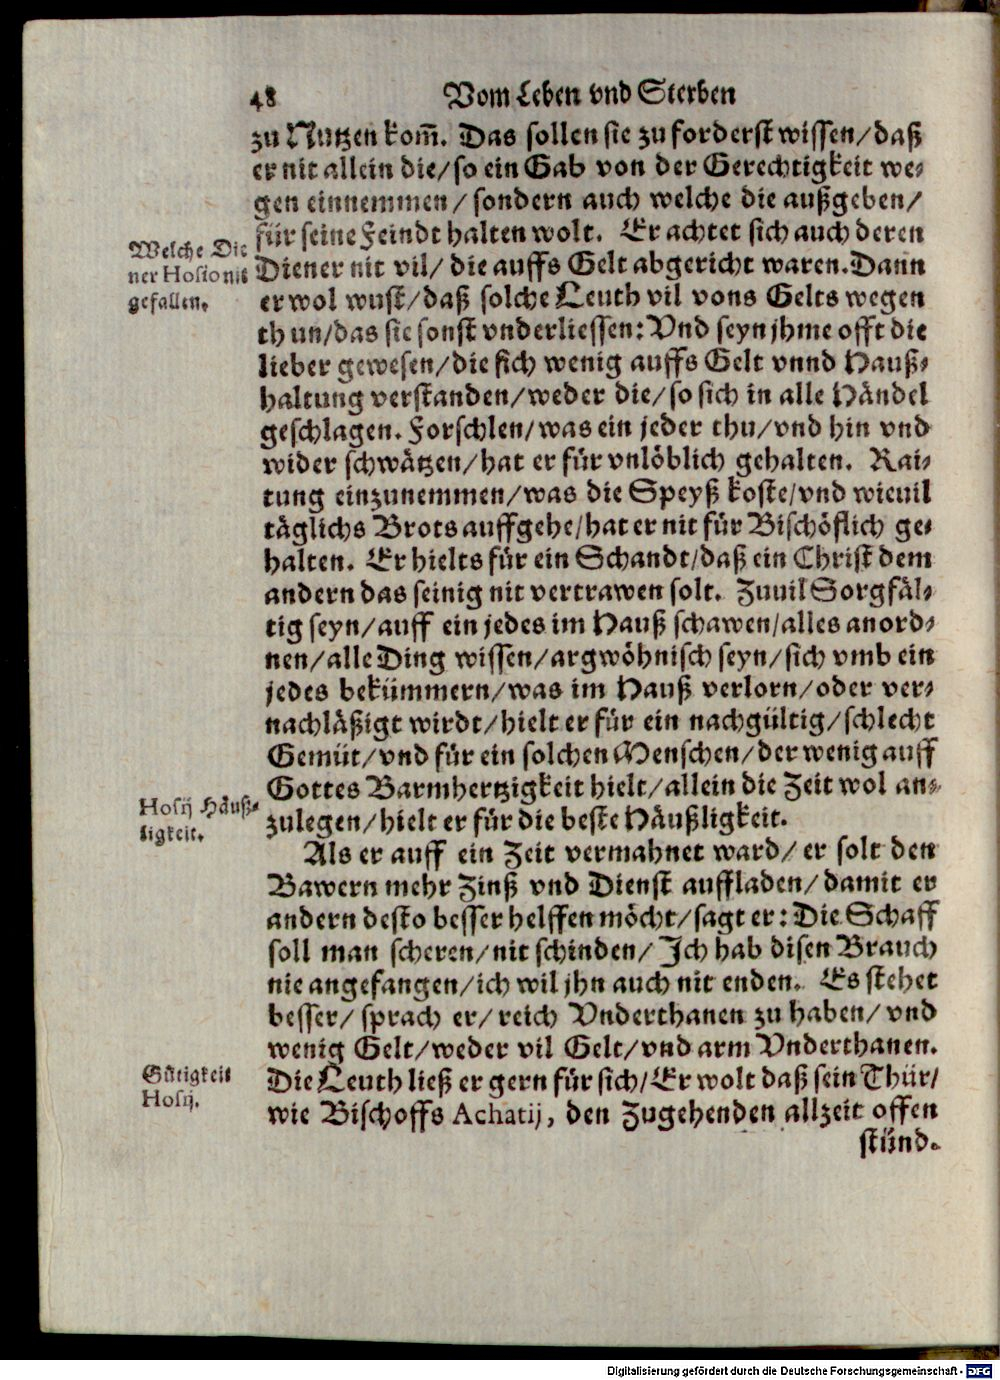 48 Vom Leben vnd Sterben
zu Nutzen kom̃. Das sollen sie zu forderst wissen/daß
er nit allein die/so ein Gab von der Gerechtigkeit we-
gen einnemmen/ sondern auch welche die außgeben/
für seine Feindt halten wolt. Er achtet sich auch deren
Welche Die
ner Hosio nit
gefallen.
Diener nit vil/ die auffs Gelt abgericht waren. Dann
er wol wust/daß solche Leuth vil vons Gelts wegen
thun/das sie sonst vnderliessen: Vnd seyn jhme offt die
lieber gewesen/die sich wenig auffs Gelt vnnd Hauß-
haltung verstanden/weder die/so sich in alle Händel
geschlagen. Forschlen/was ein jeder thu/vnd hin vnd
wider schwätzen/hat er für vnlöblich gehalten. Rai-
tung einzunemmen/was die Speyß koste/vnd wieuil
täglichs Brots auffgehe/hat er nit für Bischöflich ge-
halten. Er hielts für ein Schandt/daß ein Christ dem
andern das seinig nit vertrawen solt. Zuuil Sorgfäl-
tig seyn/auff ein jedes im Hauß schawen/alles anord-
nen/alle Ding wissen/argwöhnisch seyn/sich vmb ein
jedes bekümmern/was im Hauß verlorn/oder ver-
nachläßigt wirdt/hielt er für ein nachgültig/schlecht
Gemüt/vnd für ein solchen Menschen/der wenig auff
Gottes Barmhertzigkeit hielt/allein die Zeit wol an-
Hosij Häuß-
ligkeit.
zulegen/hielt er für die beste Häußligkeit.
Als er auff ein Zeit vermahnet ward/ er solt den
Bawern mehr Zinß vnd Dienst auffladen/damit er
andern desto besser helffen möcht/sagt er: Die Schaff
soll man scheren/nit schinden/ Ich hab disen Brauch
nie angefangen/ich wil jhn auch nit enden. Es stehet
besser/ sprach er/ reich Vnderthanen zu haben/ vnd
wenig Gelt/weder vil Gelt/vnd arm Vnderthanen.
Gütigkeit
Hosij.
Die Leuth ließ er gern für sich/Er wolt daß sein Thür/
wie Bischoffs Achatij, den Zugehenden allzeit offen
stünd.
Digitalisierung gefördert durch die Deutsche Forschungsgemeinschaft - DFG